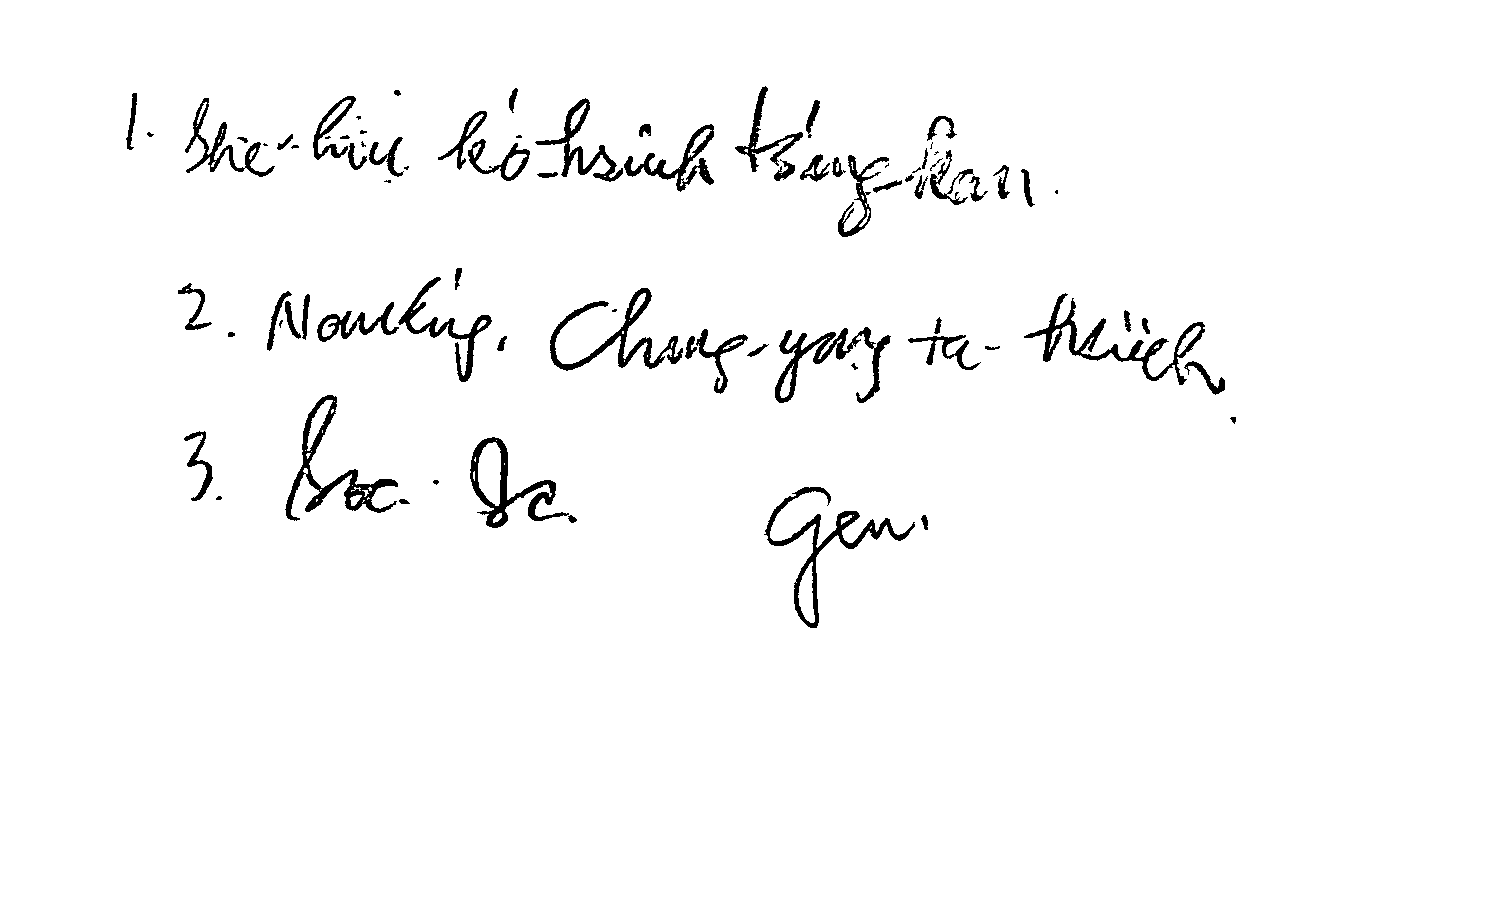 1. She-hui k'o-hsüeh ts'ung-k'an.
2. Nanking. Chung-yang ta-hsüeh.
3. Soc. Sc. Gen.